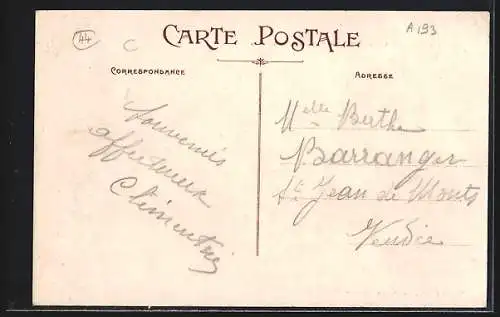 44
C
A193
CARTE POSTALE
CORRESPONDANCE
ADRESSE
Souvenirs
affectueux
Clémentine
Melle Berthe
Barranger
St Jean de Monts
Vendée